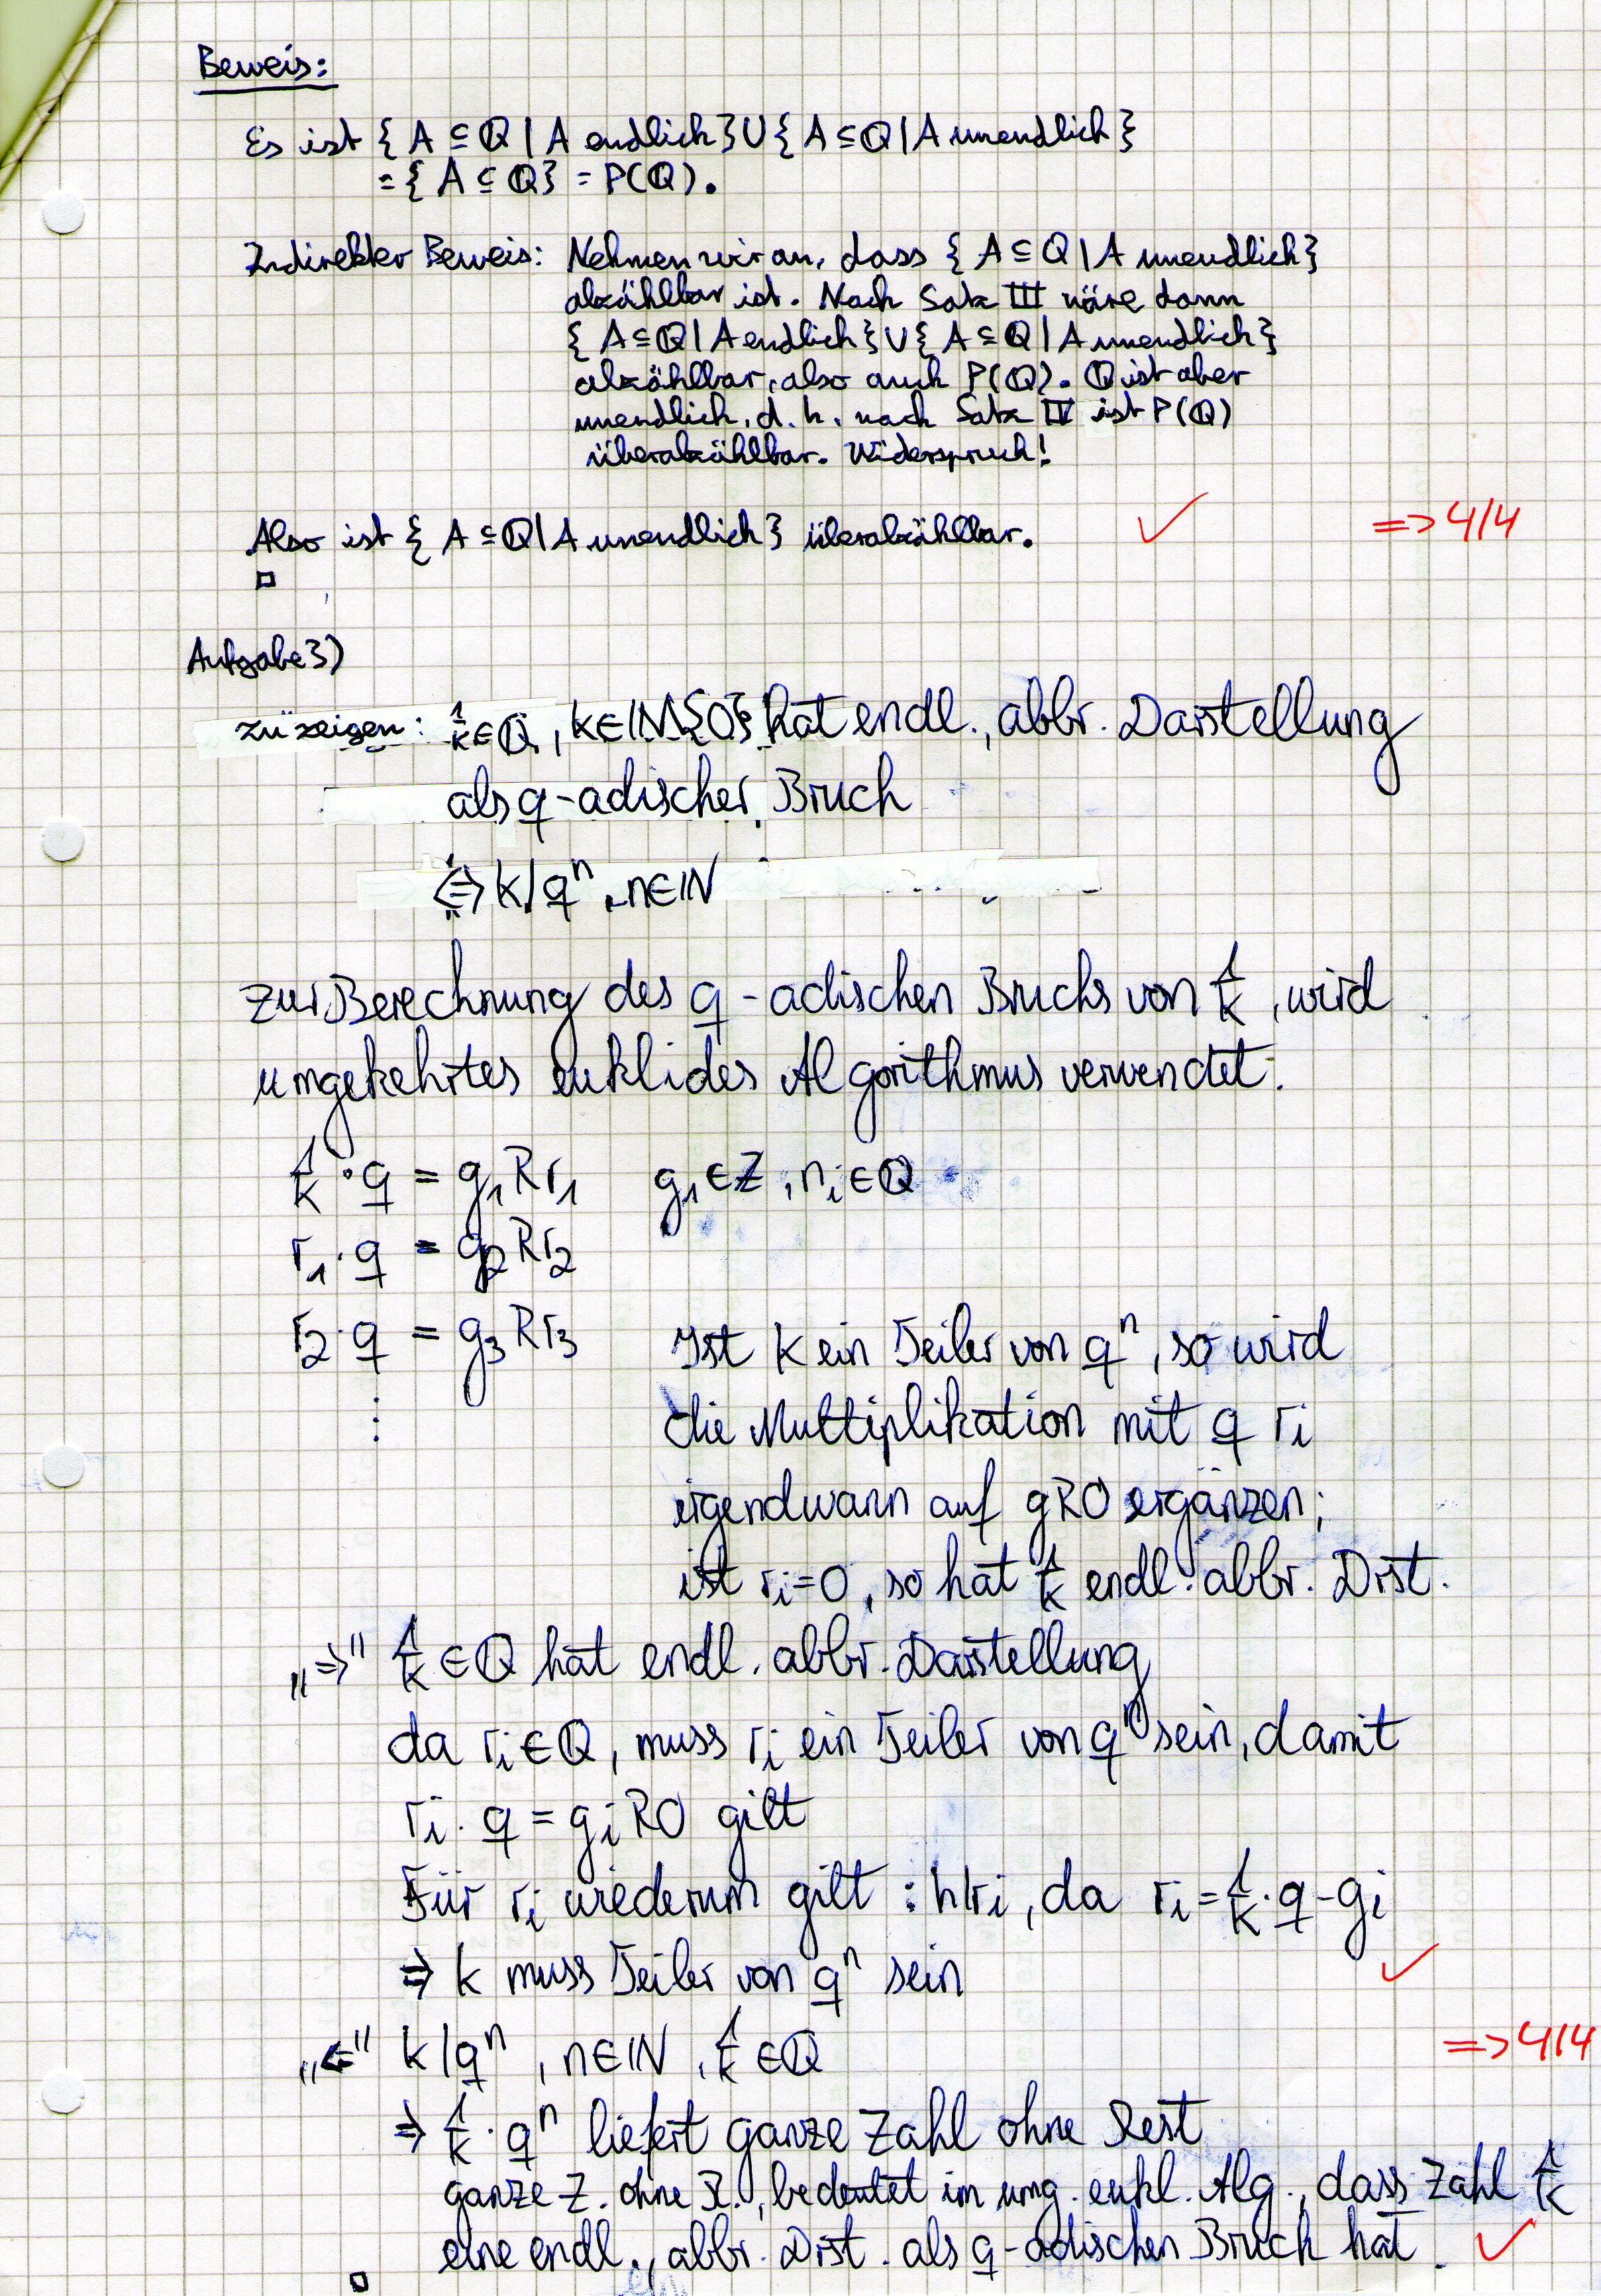 Beweis:
Es ist { A ⊆ ℚ | A endlich } ∪ { A ⊆ ℚ | A unendlich }
= { A ⊆ ℚ } = P(ℚ).
Indirekter Beweis: Nehmen wir an, dass { A ⊆ ℚ | A unendlich }
abzählbar ist. Nach Satz III wäre dann
{ A ⊆ ℚ | A endlich } ∪ { A ⊆ ℚ | A unendlich }
abzählbar, also auch P(ℚ). ℚ ist aber
unendlich, d. h. nach Satz IV ist P(ℚ)
überabzählbar. Widerspruch!
Also ist { A ⊆ ℚ | A unendlich } überabzählbar. ✓ => 4/4
□
Aufgabe 3)
zu zeigen: 1/k ∈ ℚ, k ∈ ℕ\{0} hat endl., abbr. Darstellung
als q-adischer Bruch
⇔ k | qⁿ, n ∈ ℕ
Zur Berechnung des q-adischen Bruchs von 1/k, wird
umgekehrtes euklides Algorithmus verwendet:
1/k · q = g₁ R r₁ g₁ ∈ ℤ, rᵢ ∈ ℚ
r₁ · q = g₂ R r₂
r₂ · q = g₃ R r₃ Ist k ein Teiler von qⁿ, so wird
⋮ die Multiplikation mit q rᵢ
irgendwann auf g R 0 ergänzen;
ist rᵢ = 0, so hat 1/k endl. abbr. Drst.
„⇒" 1/k ∈ ℚ hat endl. abbr. Darstellung
da rᵢ ∈ ℚ, muss rᵢ ein Teiler von qⁿ sein, damit
rᵢ · q = gᵢ R 0 gilt
Für rᵢ wiederum gilt : k | rᵢ, da rᵢ = 1/k · q - gᵢ
⇒ k muss Teiler von qⁿ sein ✓
„⇐" k | qⁿ, n ∈ ℕ, 1/k ∈ ℚ => 4/4
⇒ 1/k · qⁿ liefert ganze Zahl ohne Rest
ganze Z. ohne R., bedeutet im umg. eukl. Alg., dass Zahl 1/k
eine endl., abbr. Drst. als q-adischen Bruch hat. ✓
□